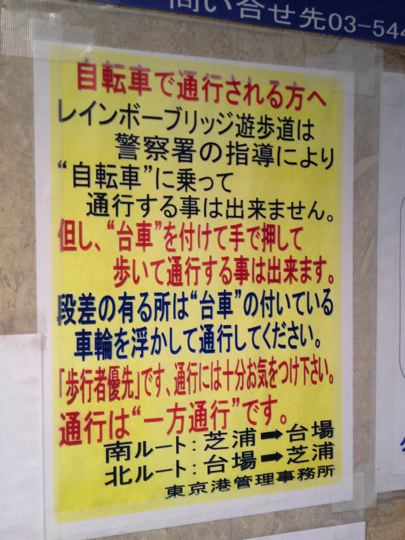 問い合せ先03-544
自転車で通行される方へ
レインボーブリッジ遊歩道は
警察署の指導により
“自転車”に乗って
通行する事は出来ません。
但し、“台車”を付けて手で押して
歩いて通行する事は出来ます。
段差の有る所は“台車”の付いている
車輪を浮かして通行してください。
「歩行者優先」です、通行には十分お気をつけ下さい。
通行は“一方通行”です。
南ルート:芝浦➡台場
北ルート:台場➡芝浦
東京港管理事務所